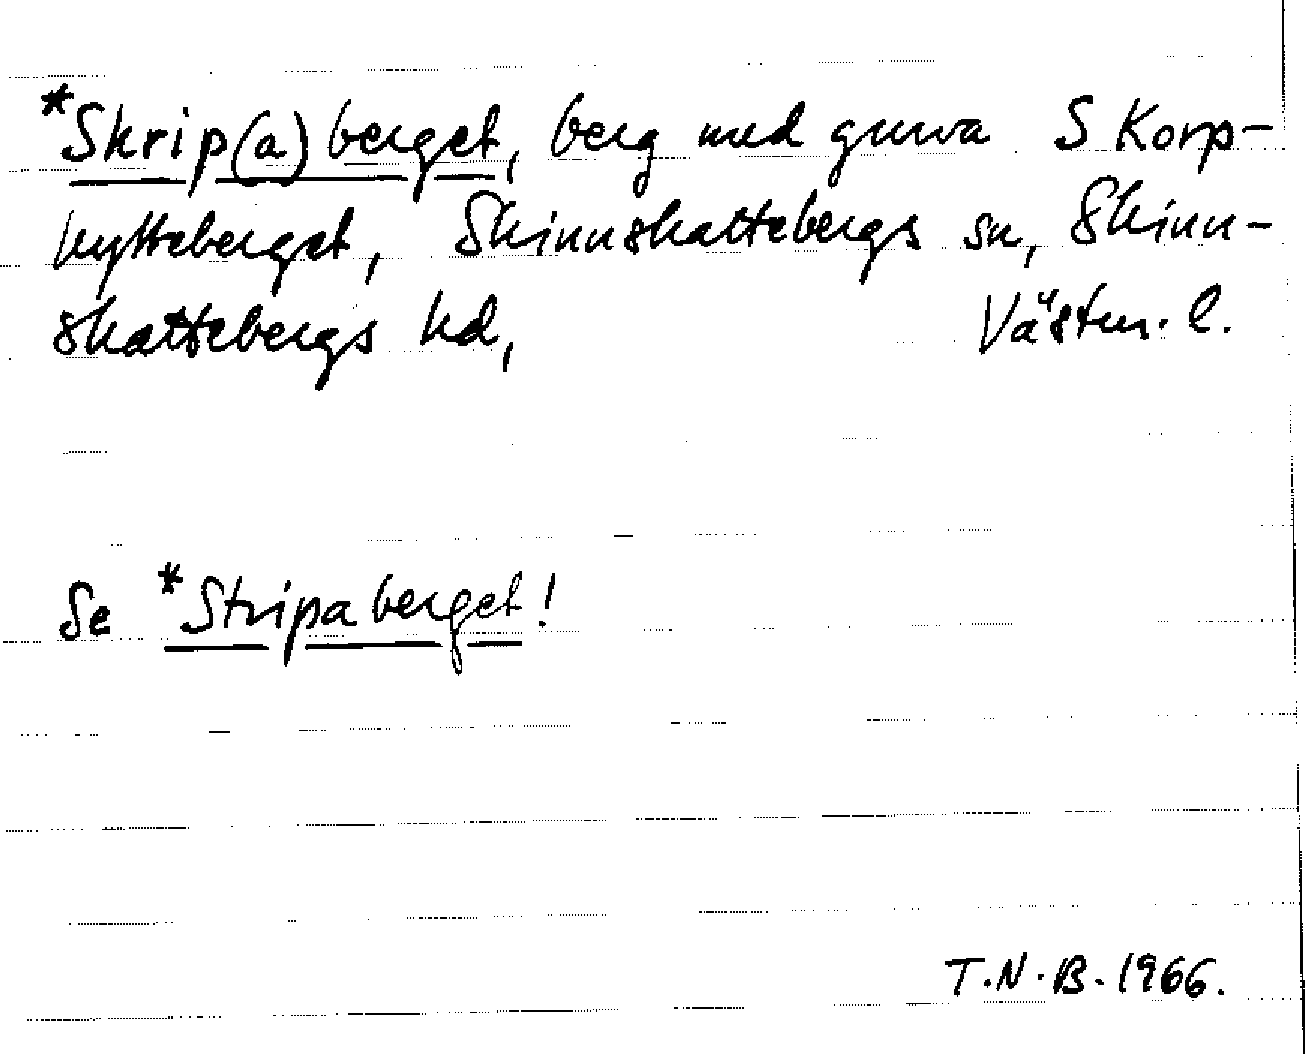 *Skrip(a)berget, berg med gruva S Korp-
hytteberget, Skinnskattebergs sn, Skinn-
skattebergs hd, Västm. l.
Se *Stripaberget!
T.N.B. 1966.